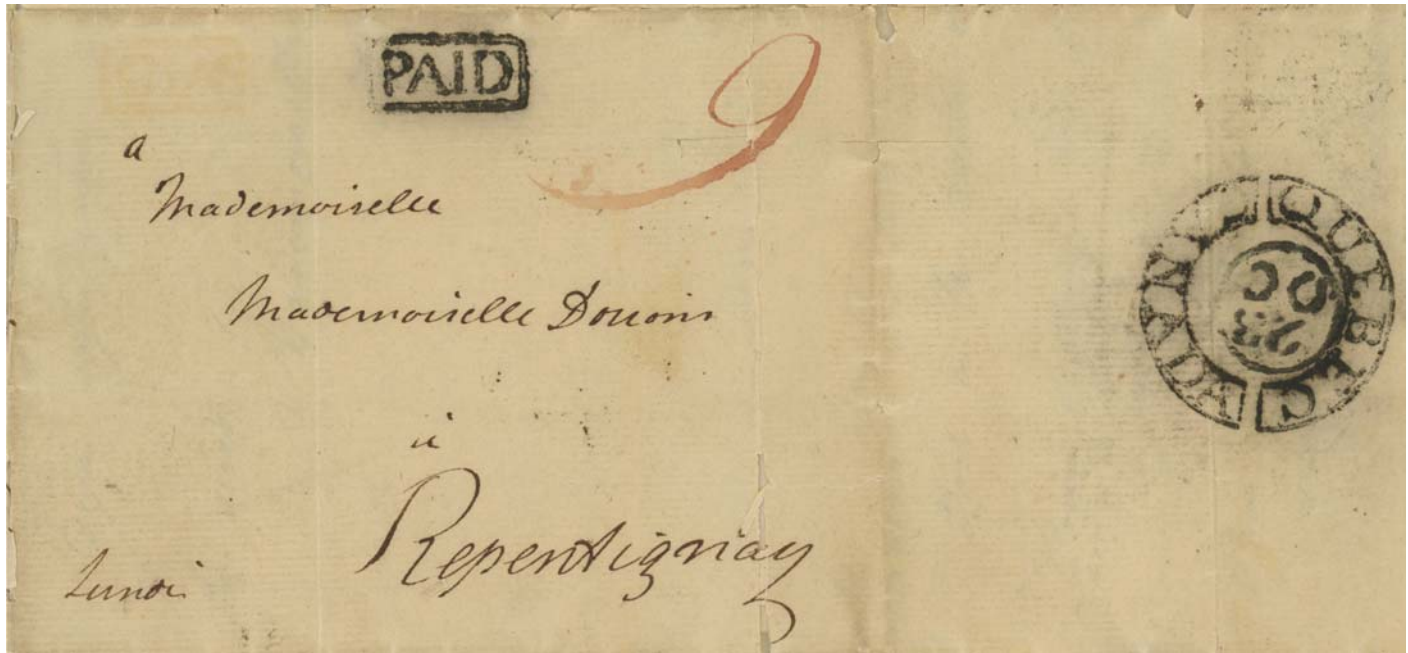 PAID
9
a
Mademoiselle
Mademoiselle
à
Repentignay
Lundi
QUEBEC
OC